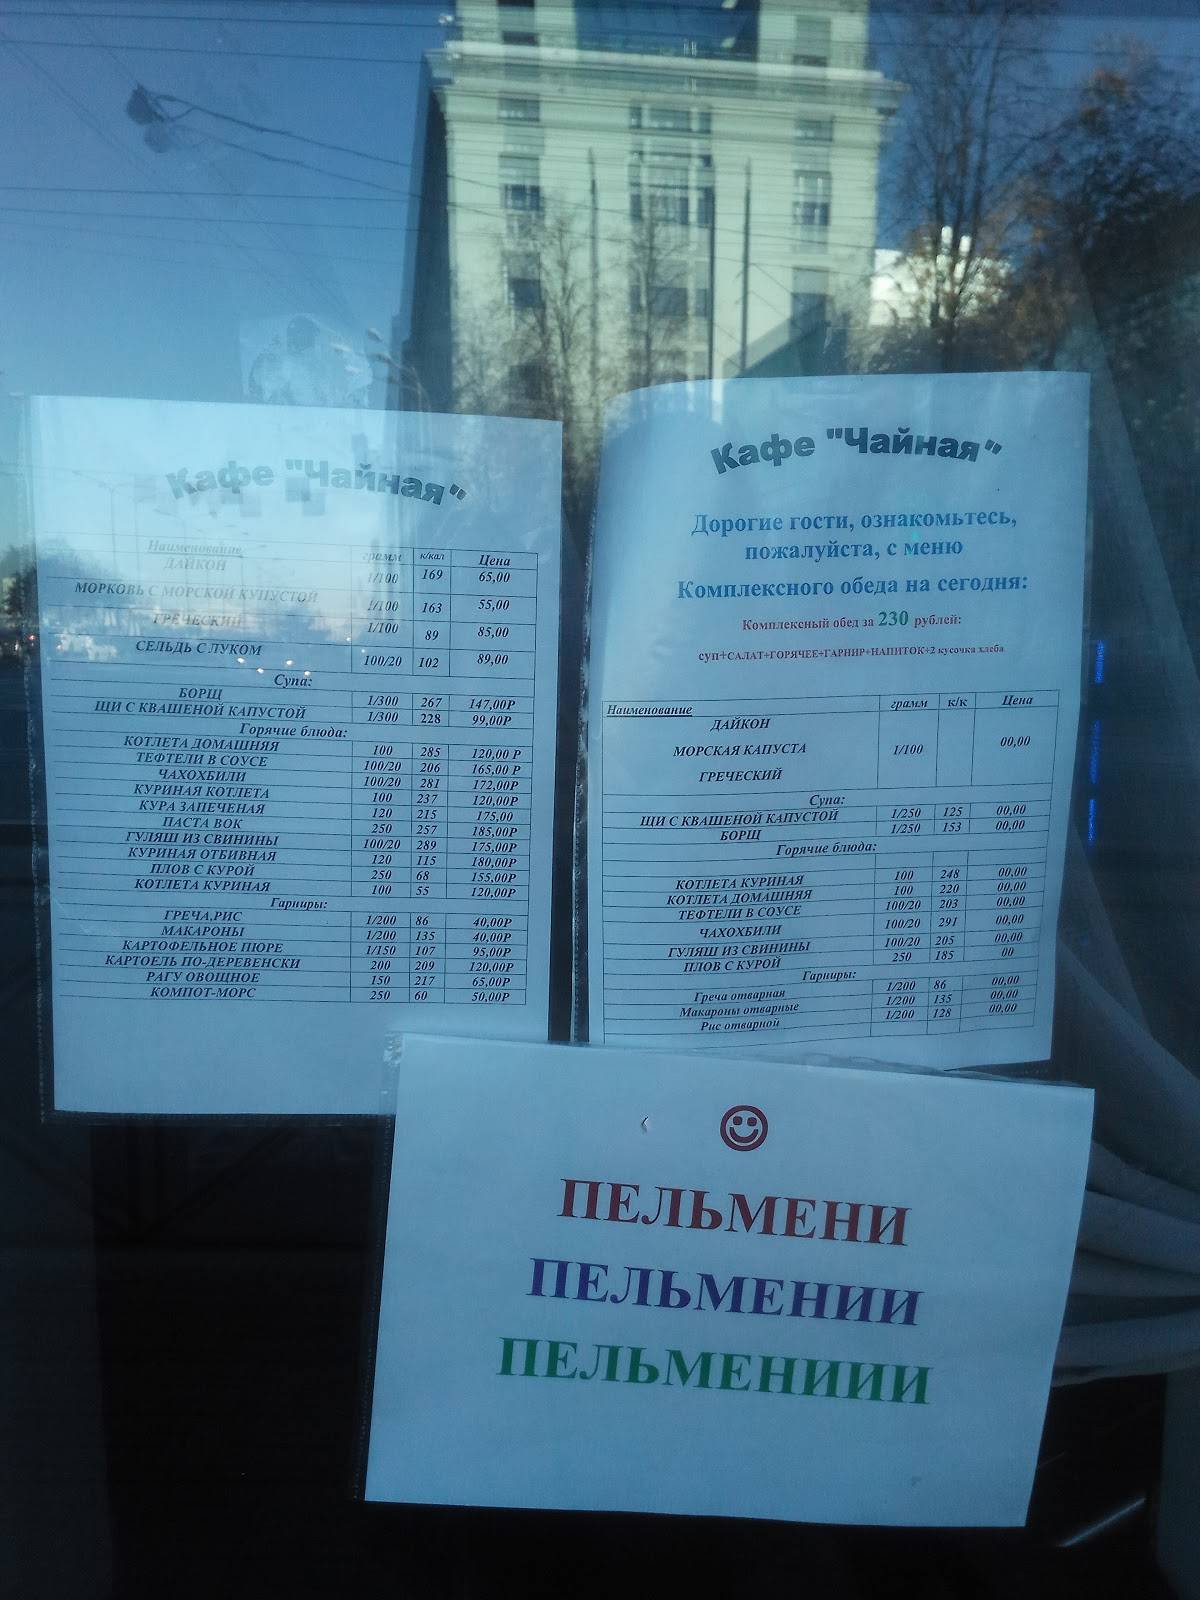 Кафе "Чайная"
Наименование грамм к/кал Цена
ДАЙКОН 1/100 169 65,00
МОРКОВЬ С МОРСКОЙ КУПУСТОЙ 1/100 163 55,00
ГРЕЧЕСКИЙ 1/100 89 85,00
СЕЛЬДЬ С ЛУКОМ 100/20 102 89,00
Супа:
БОРЩ 1/300 267 147,00Р
ЩИ С КВАШЕНОЙ КАПУСТОЙ 1/300 228 99,00Р
Горячие блюда:
КОТЛЕТА ДОМАШНЯЯ 100 285 120,00 Р
ТЕФТЕЛИ В СОУСЕ 100/20 206 165,00 Р
ЧАХОХБИЛИ 100/20 281 172,00Р
КУРИНАЯ КОТЛЕТА 100 237 120,00Р
КУРА ЗАПЕЧЕНАЯ 120 215 175,00
ПАСТА ВОК 250 257 185,00Р
ГУЛЯШ ИЗ СВИНИНЫ 100/20 289 175,00Р
КУРИНАЯ ОТБИВНАЯ 120 115 180,00Р
ПЛОВ С КУРОЙ 250 68 155,00Р
КОТЛЕТА КУРИНАЯ 100 55 120,00Р
Гарниры:
ГРЕЧА,РИС 1/200 86 40,00Р
МАКАРОНЫ 1/200 135 40,00Р
КАРТОФЕЛЬНОЕ ПЮРЕ 1/150 107 95,00Р
КАРТОЕЛЬ ПО-ДЕРЕВЕНСКИ 200 209 120,00Р
РАГУ ОВОЩНОЕ 150 217 65,00Р
КОМПОТ-МОРС 250 60 50,00Р
Кафе "Чайная"
Дорогие гости, ознакомьтесь,
пожалуйста, с меню
Комплексного обеда на сегодня:
Комплексный обед за 230 рублей:
суп+САЛАТ+ГОРЯЧЕЕ+ГАРНИР+НАПИТОК+2 кусочка хлеба
Наименование грамм к/к Цена
ДАЙКОН
МОРСКАЯ КАПУСТА 1/100 00,00
ГРЕЧЕСКИЙ
Супа:
ЩИ С КВАШЕНОЙ КАПУСТОЙ 1/250 125 00,00
БОРЩ 1/250 153 00,00
Горячие блюда:
КОТЛЕТА КУРИНАЯ 100 248 00,00
КОТЛЕТА ДОМАШНЯЯ 100 220 00,00
ТЕФТЕЛИ В СОУСЕ 100/20 203 00,00
ЧАХОХБИЛИ 100/20 291 00,00
ГУЛЯШ ИЗ СВИНИНЫ 100/20 205 00,00
ПЛОВ С КУРОЙ 250 185 00
Гарниры:
Греча отварная 1/200 86 00,00
Макароны отварные 1/200 135 00,00
Рис отварной 1/200 128 00,00
ПЕЛЬМЕНИ
ПЕЛЬМЕНИИ
ПЕЛЬМЕНИИИ